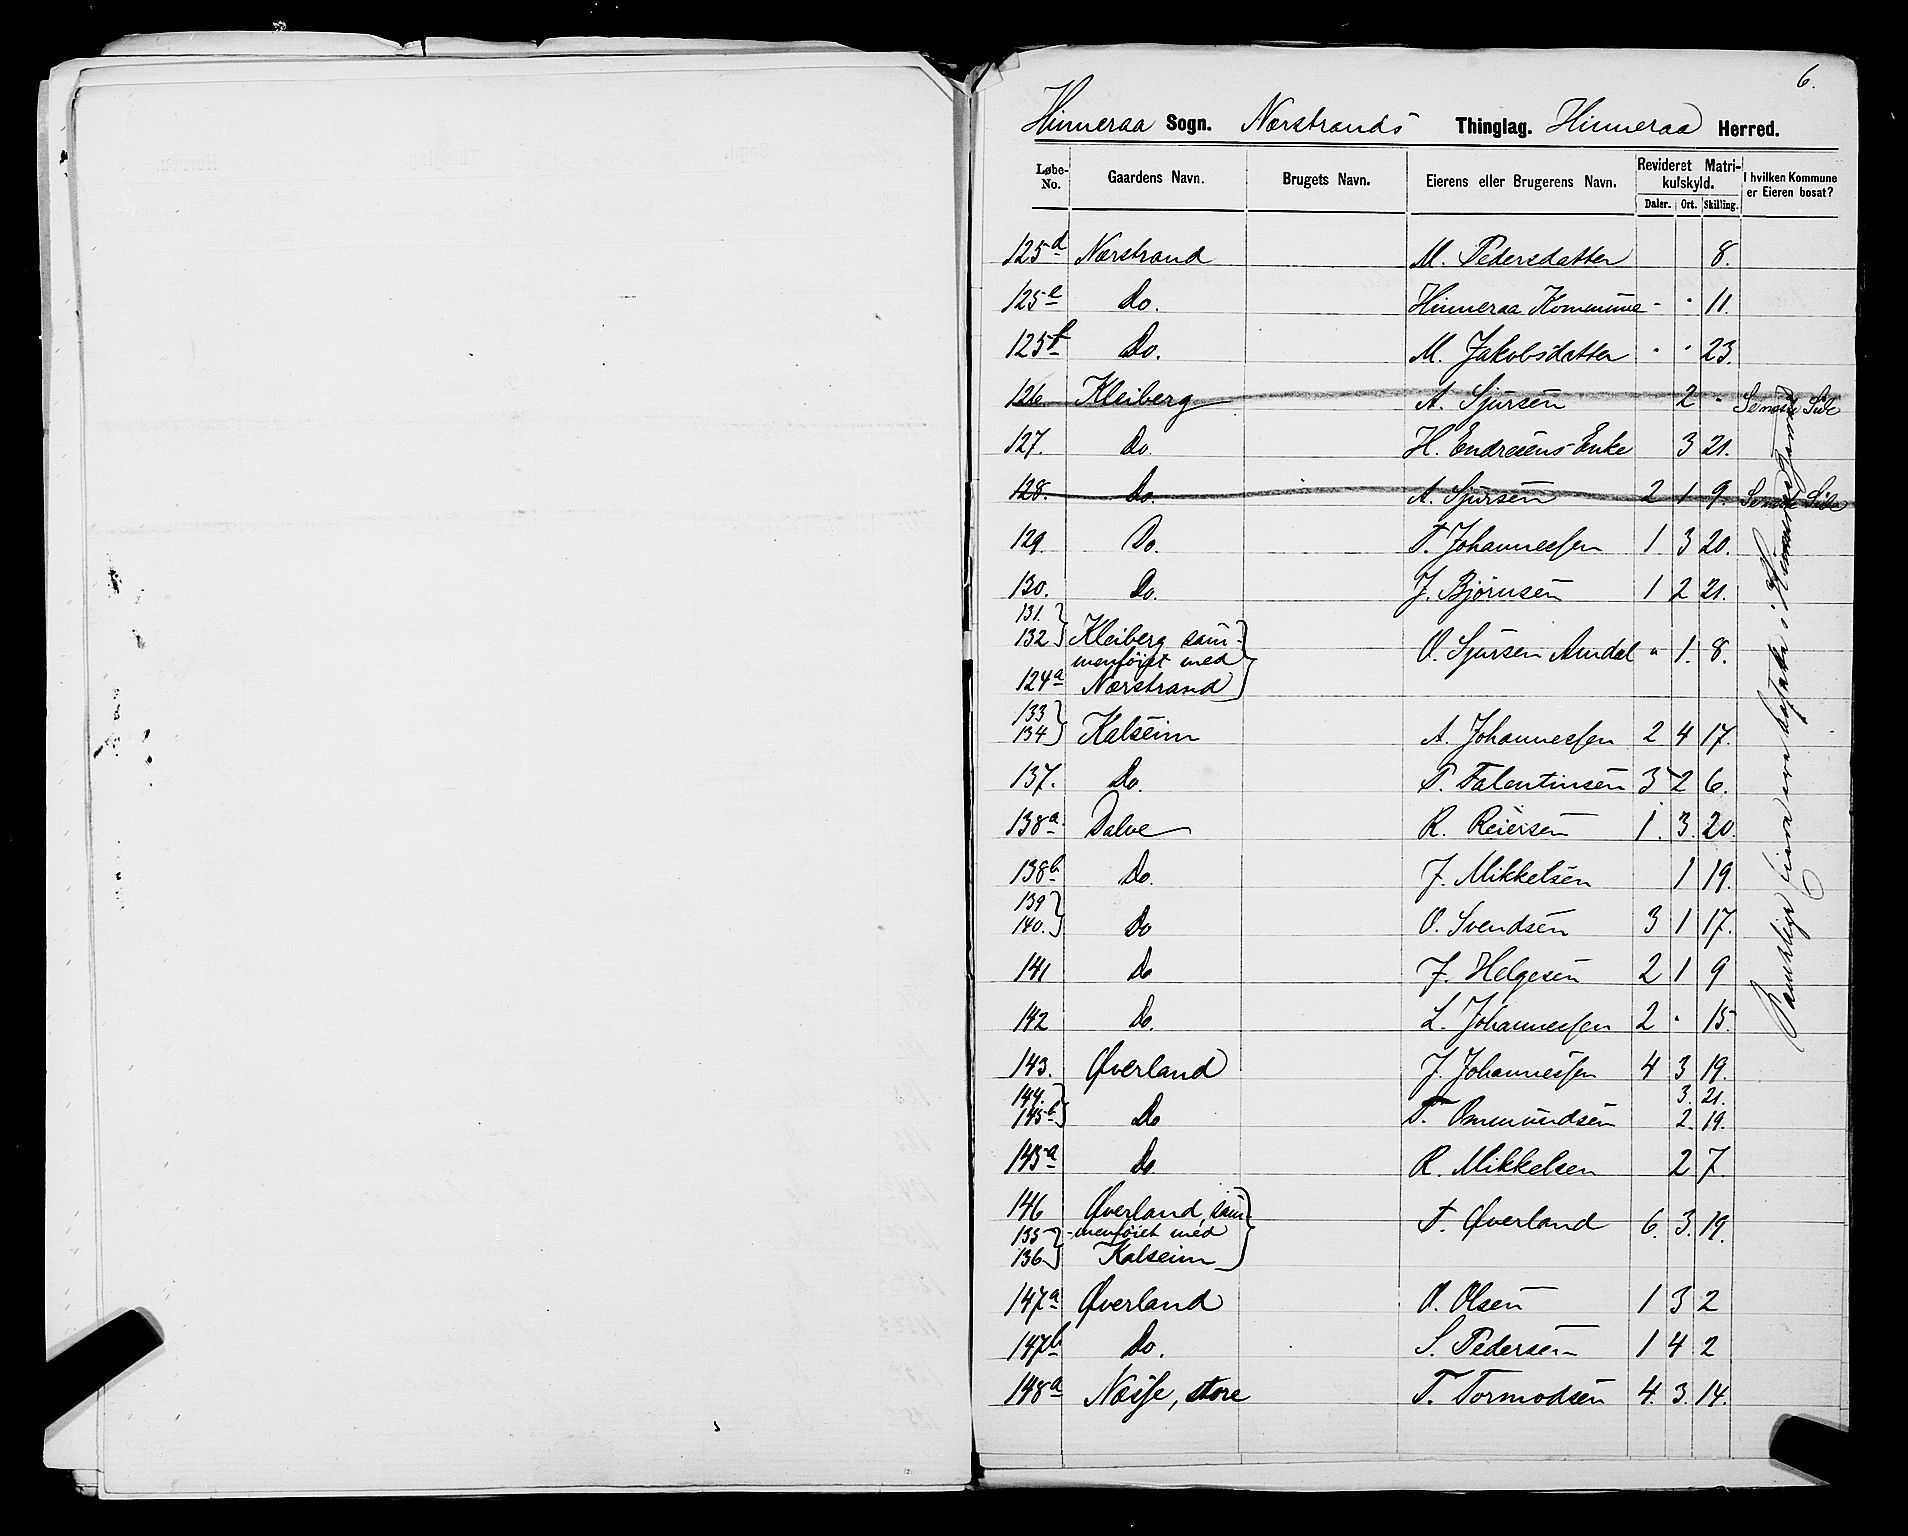 6.
Hinneraa Sogn. Nærstrands Thinglag. Hinneraa Herred.
Løbe-No. Gaardens Navn. Brugets Navn. Eierens eller Brugerens Navn. Revideret Matrikulskyld. I hvilken Kommune er Eieren bosat?
Daler. Ort. Skilling.
125d Nærstrand M. Pedersdatter 8.
125e Do. Hinneraa Kommune - " 11.
125f Do. M. Jakobsdatter " " 23.
126 Kleiberg A. Sjursen 2 " Senaste Side
127. Do. H. Endresens Enke 3 21.
128. Do. A. Sjursen 2 1 9. Senaste Side
129. Do. T. Johannessen 1 3 20.
130. Do. J. Bjørnsen 1 2 21.
131.
132 Kleiberg sam-
menføiet med O. Sjursen Amdal " 1. 8.
124a Nærstrand
133
134 Kalseim A. Johannessen 2 4 17.
137. Do. P. Falentinsen 3 2 6.
138a. Dalve R. Reiersen 1. 3. 20.
138b Do. J. Mikkelsen 1 19.
139
140. Do O. Svendsen 3 1 17.
141 Do J. Helgesen 2 1 9
142 Do. L. Johannessen 2 " 15
143. Øverland J. Johannessen 4 3 19.
144. 3. 21.
145b Do T. Ommundsen 2. 19.
145a Do. R. Mikkelsen 2 7
146 Øverland sam-
135 -menføiet med T. Øverland 6. 3. 19.
136 Kalseim
147a Øverland O. Olsen 1 3 2
147b Do. S. Pedersen 1 4 2
148a Næsse, store T. Tormodsen 4. 3. 14.
Samtlige Eiere ere bosatte i Hinneraa